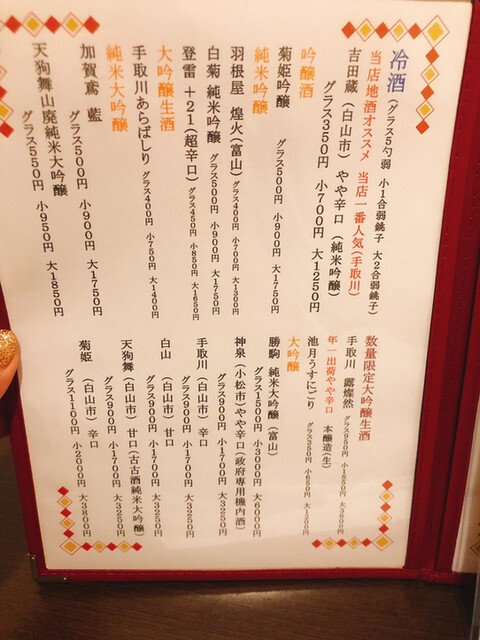 冷酒(グラス5勺弱 小1合弱銚子 大2合弱銚子)
当店地酒オススメ 当店一番人気(手取川)
吉田蔵 (白山市) やや辛口 (純米吟醸)
グラス350円 小700円 大1250円
吟醸酒
菊姫吟醸 グラス500円 小900円 大1750円
純米吟醸
羽根屋 煌火(富山) グラス400円 小700円 大1300円
白菊 純米吟醸 グラス500円 小900円 大1750円
登雷 +21(超辛口) グラス450円 小850円 大1650円
大吟醸生酒
手取川あらばしり グラス400円 小750円 大1400円
純米大吟醸
加賀鳶 藍 グラス500円 小900円 大1750円
天狗舞山廃純米大吟醸
グラス550円 小950円 大1850円
数量限定大吟醸生酒
手取川 露燦然 グラス950円 小1850円 大3600円
年一出荷やや辛口 本醸造(生)
池月うすにごり グラス350円 小650円 大1200円
大吟醸
勝駒 純米大吟醸(富山)
グラス1500円 小3000円 大6000円
神泉(小松市)やや辛口(政府専用機内酒)
グラス900円 小1700円 大3250円
手取川 (白山市) 辛口
グラス900円 小1700円 大3250円
白山 (白山市) 甘口
グラス900円 小1700円 大3250円
天狗舞 (白山市) 甘口(古古酒純米大吟醸)
グラス900円 小1700円 大3250円
菊姫 (白山市) 辛口
グラス1100円 小2000円 大3800円